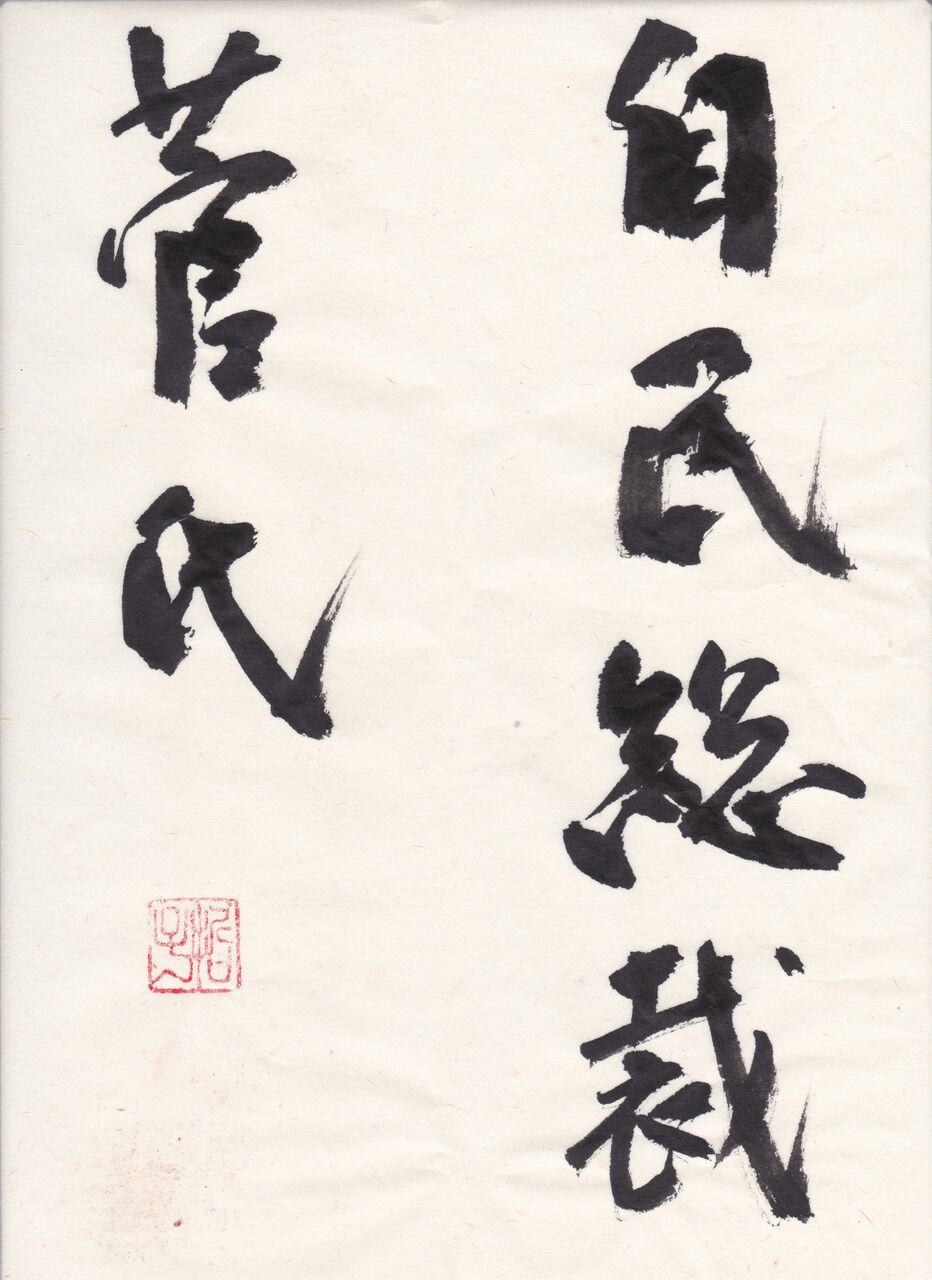 自民総裁
菅氏